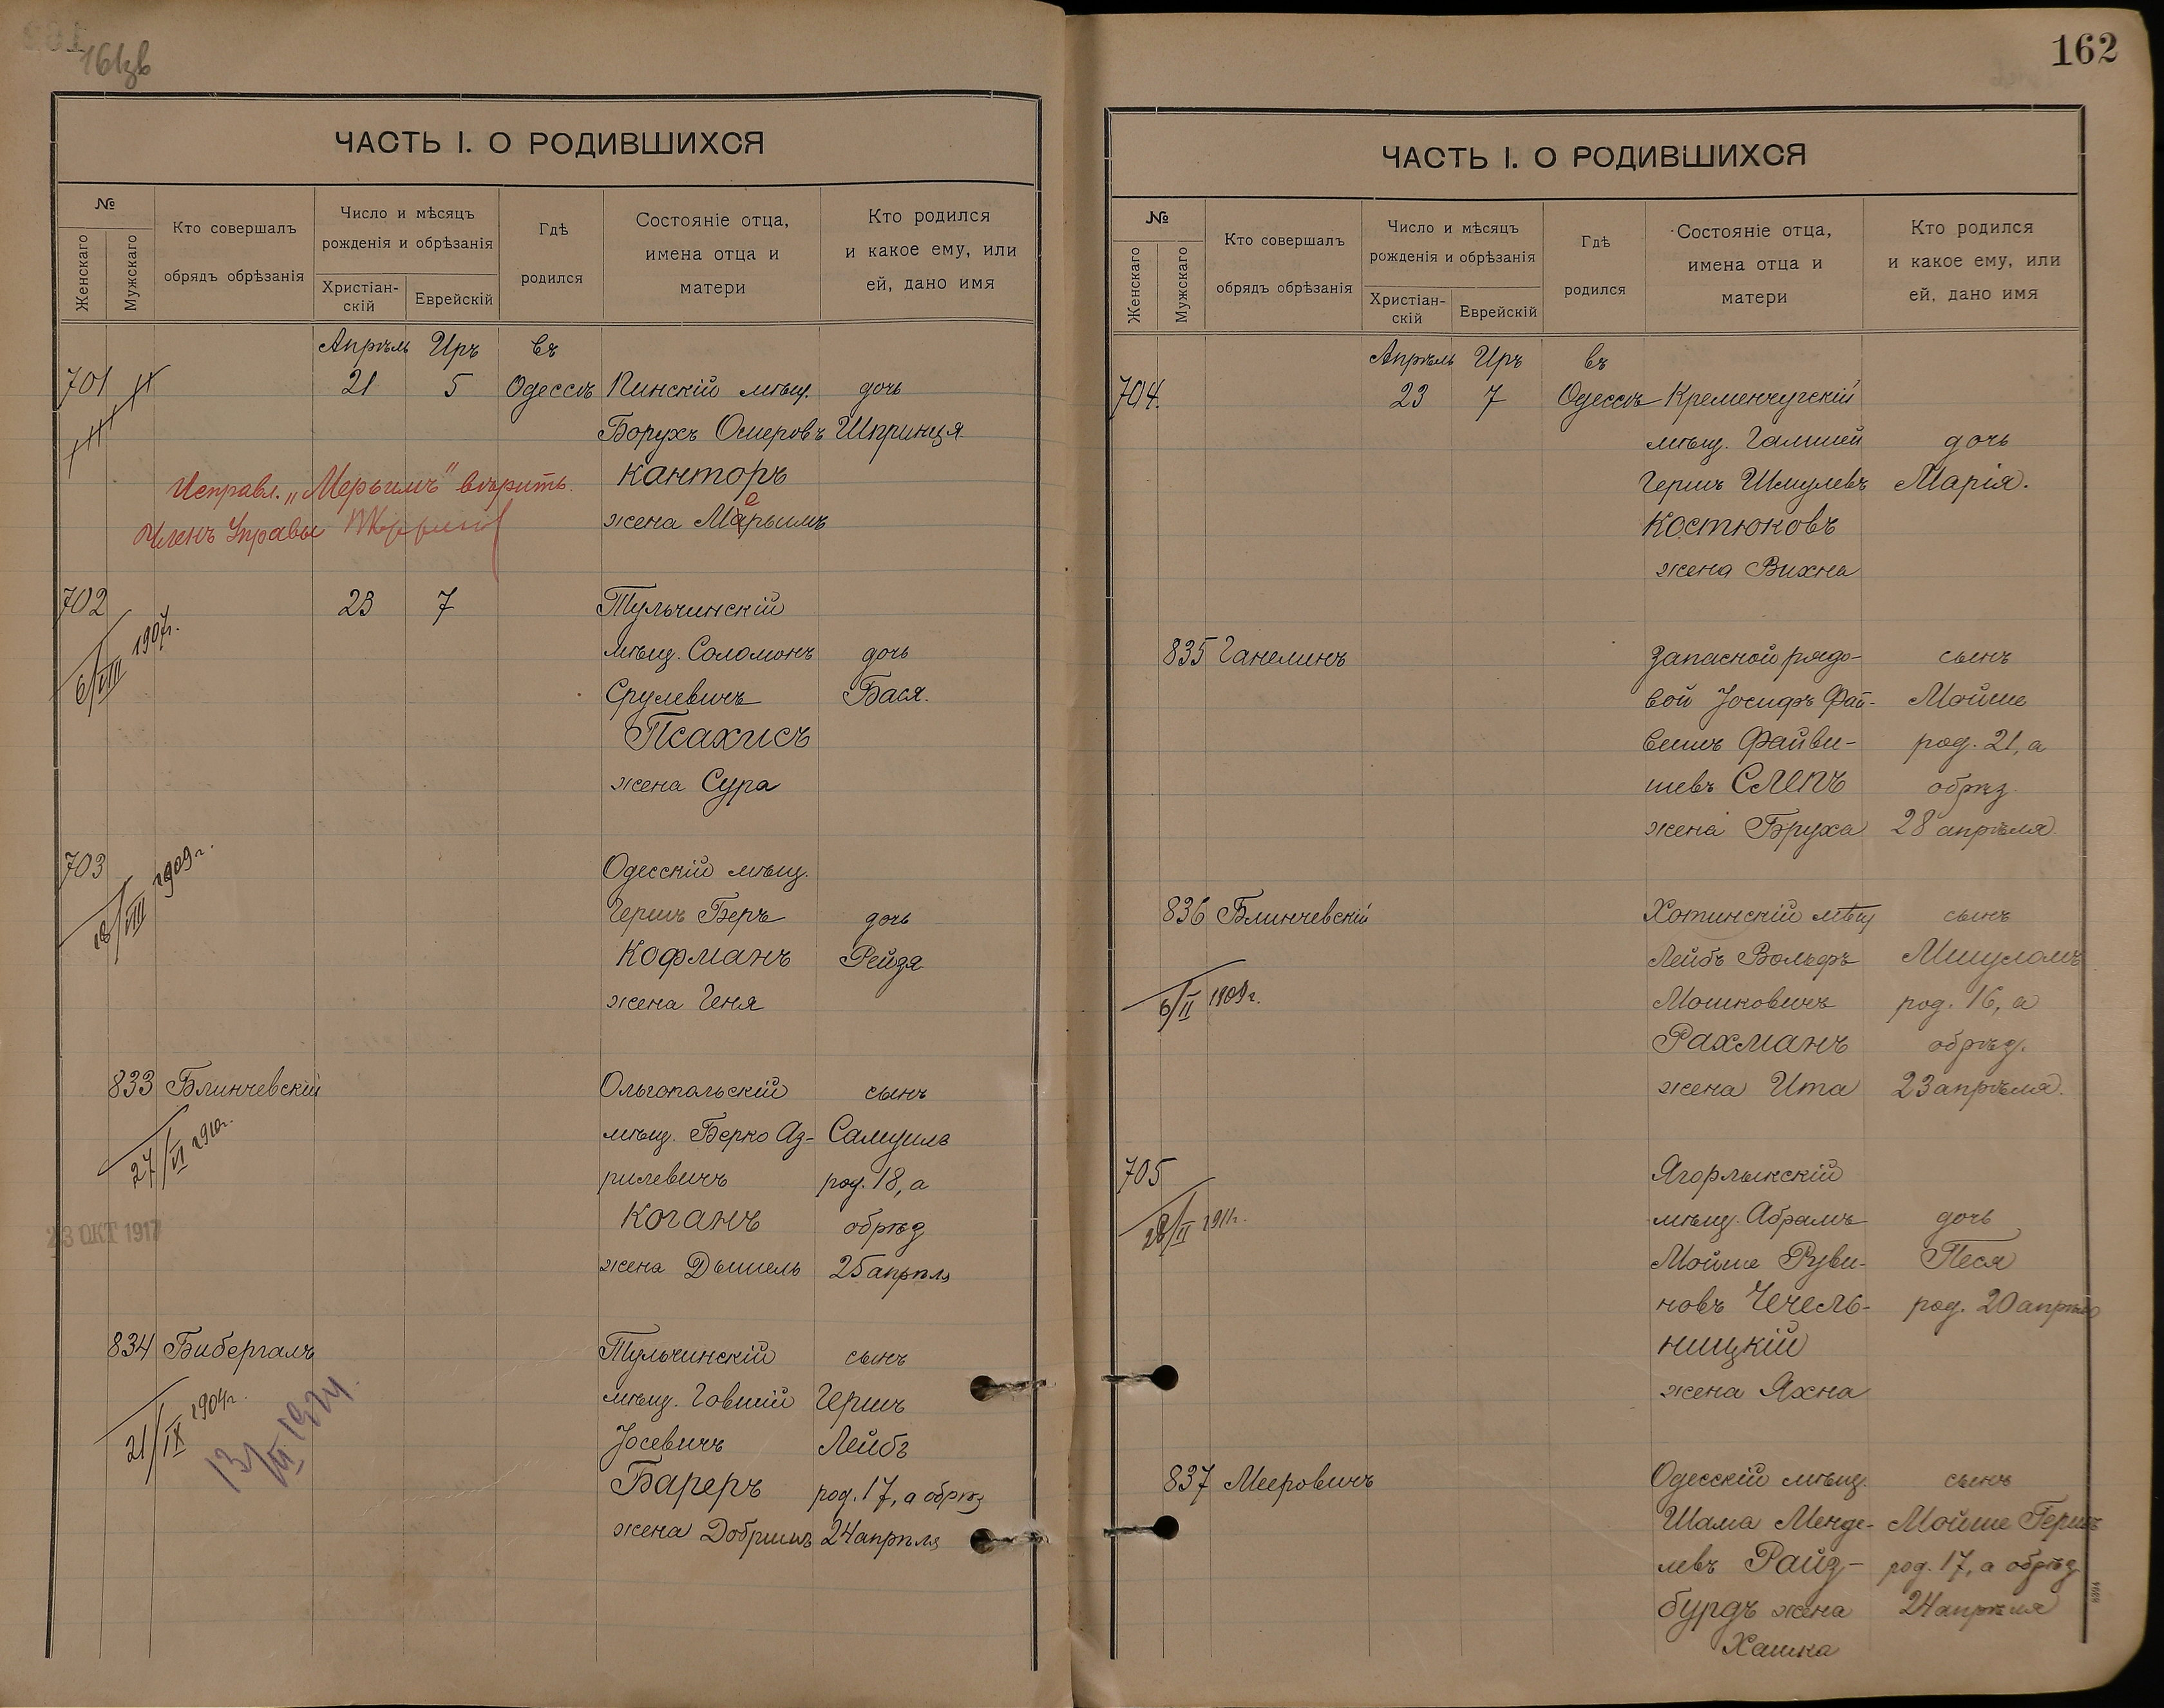 161зв
ЧАСТЬ I. О РОДИВШИХСЯ
№
Женскаго
Мужскаго
Кто совершалъ
обрядъ обрѣзанія
Число и мѣсяцъ
рожденія и обрѣзанія
Христіан-
скій
Еврейскій
Гдѣ
родился
Состояніе отца,
имена отца и
матери
Кто родился
и какое ему, или
ей, дано имя
Апрѣль Иръ въ
701 21 5 Одессѣ Пинскій мѣщ. дочь
Борухъ Осмеровъ Шпринця
Канторъ
Исправл. „Мерьимъ" вѣрить.
жена Марьимъ
е
Членъ Управы
702 23 7 Тульчинскій
мѣщ. Соломонъ дочь
Срулевичъ Бася.
Псахисъ
жена Сура
6/VIII 1907г.
703 Одесскій мѣщ.
Гершъ Беръ дочь
Кофманъ Рейзя
жена Геня
18/VIII 1909г.
833 Блинчевскій Ольгопольскій сынъ
мѣщ. Берко Аз- Самуилъ
рилевичъ род. 18, а
Коганъ обрѣз
жена Дышель 25 апрѣля
27/VI 1910г.
23 ОКТ 1917
834 Бибергалъ Тульчинскій сынъ
мѣщ. Говшій Гершъ
Іосевичъ Лейбъ
Бареръ род. 17, а обрѣз
жена Добришъ 24 апрѣля
21/IX 1904г.
162
ЧАСТЬ I. О РОДИВШИХСЯ
№
Женскаго
Мужскаго
Кто совершалъ
обрядъ обрѣзанія
Число и мѣсяцъ
рожденія и обрѣзанія
Христіан-
скій
Еврейскій
Гдѣ
родился
Состояніе отца,
имена отца и
матери
Кто родился
и какое ему, или
ей, дано имя
Апрѣль Иръ въ
704. 23 7 Одессѣ Кременчугскій
мѣщ. Гамшей дочь
Гершъ Шмулевъ Марія.
Костюковъ
жена Вихна
835 Ганелинъ Запасной рядо- сынъ
вой Іосифъ Фай- Мойше
вишъ Файви- род. 21, а
шевъ Слепъ обрѣз.
жена Бруха 28 апрѣля
836 Блинчевскій Хотинскій мѣщ сынъ
Лейбъ Вольфъ Мишуломъ
Мошковичъ род. 16, а
Рахманъ обрѣз.
жена Ита 23 апрѣля.
6/II 1909г.
705 Ягорлыкскій
мѣщ. Абрамъ дочь
Мойше Руви- Песя
новъ Чечель- род. 20 апрѣля
ницкій
жена Яхна
28/II 1911г.
837 Мееровичъ Одесскій мѣщ. сынъ
Шама Менде- Мойше Гершъ
левъ Райз- род. 17, а обрѣз
бурдъ жена 24 апрѣля
Хашка